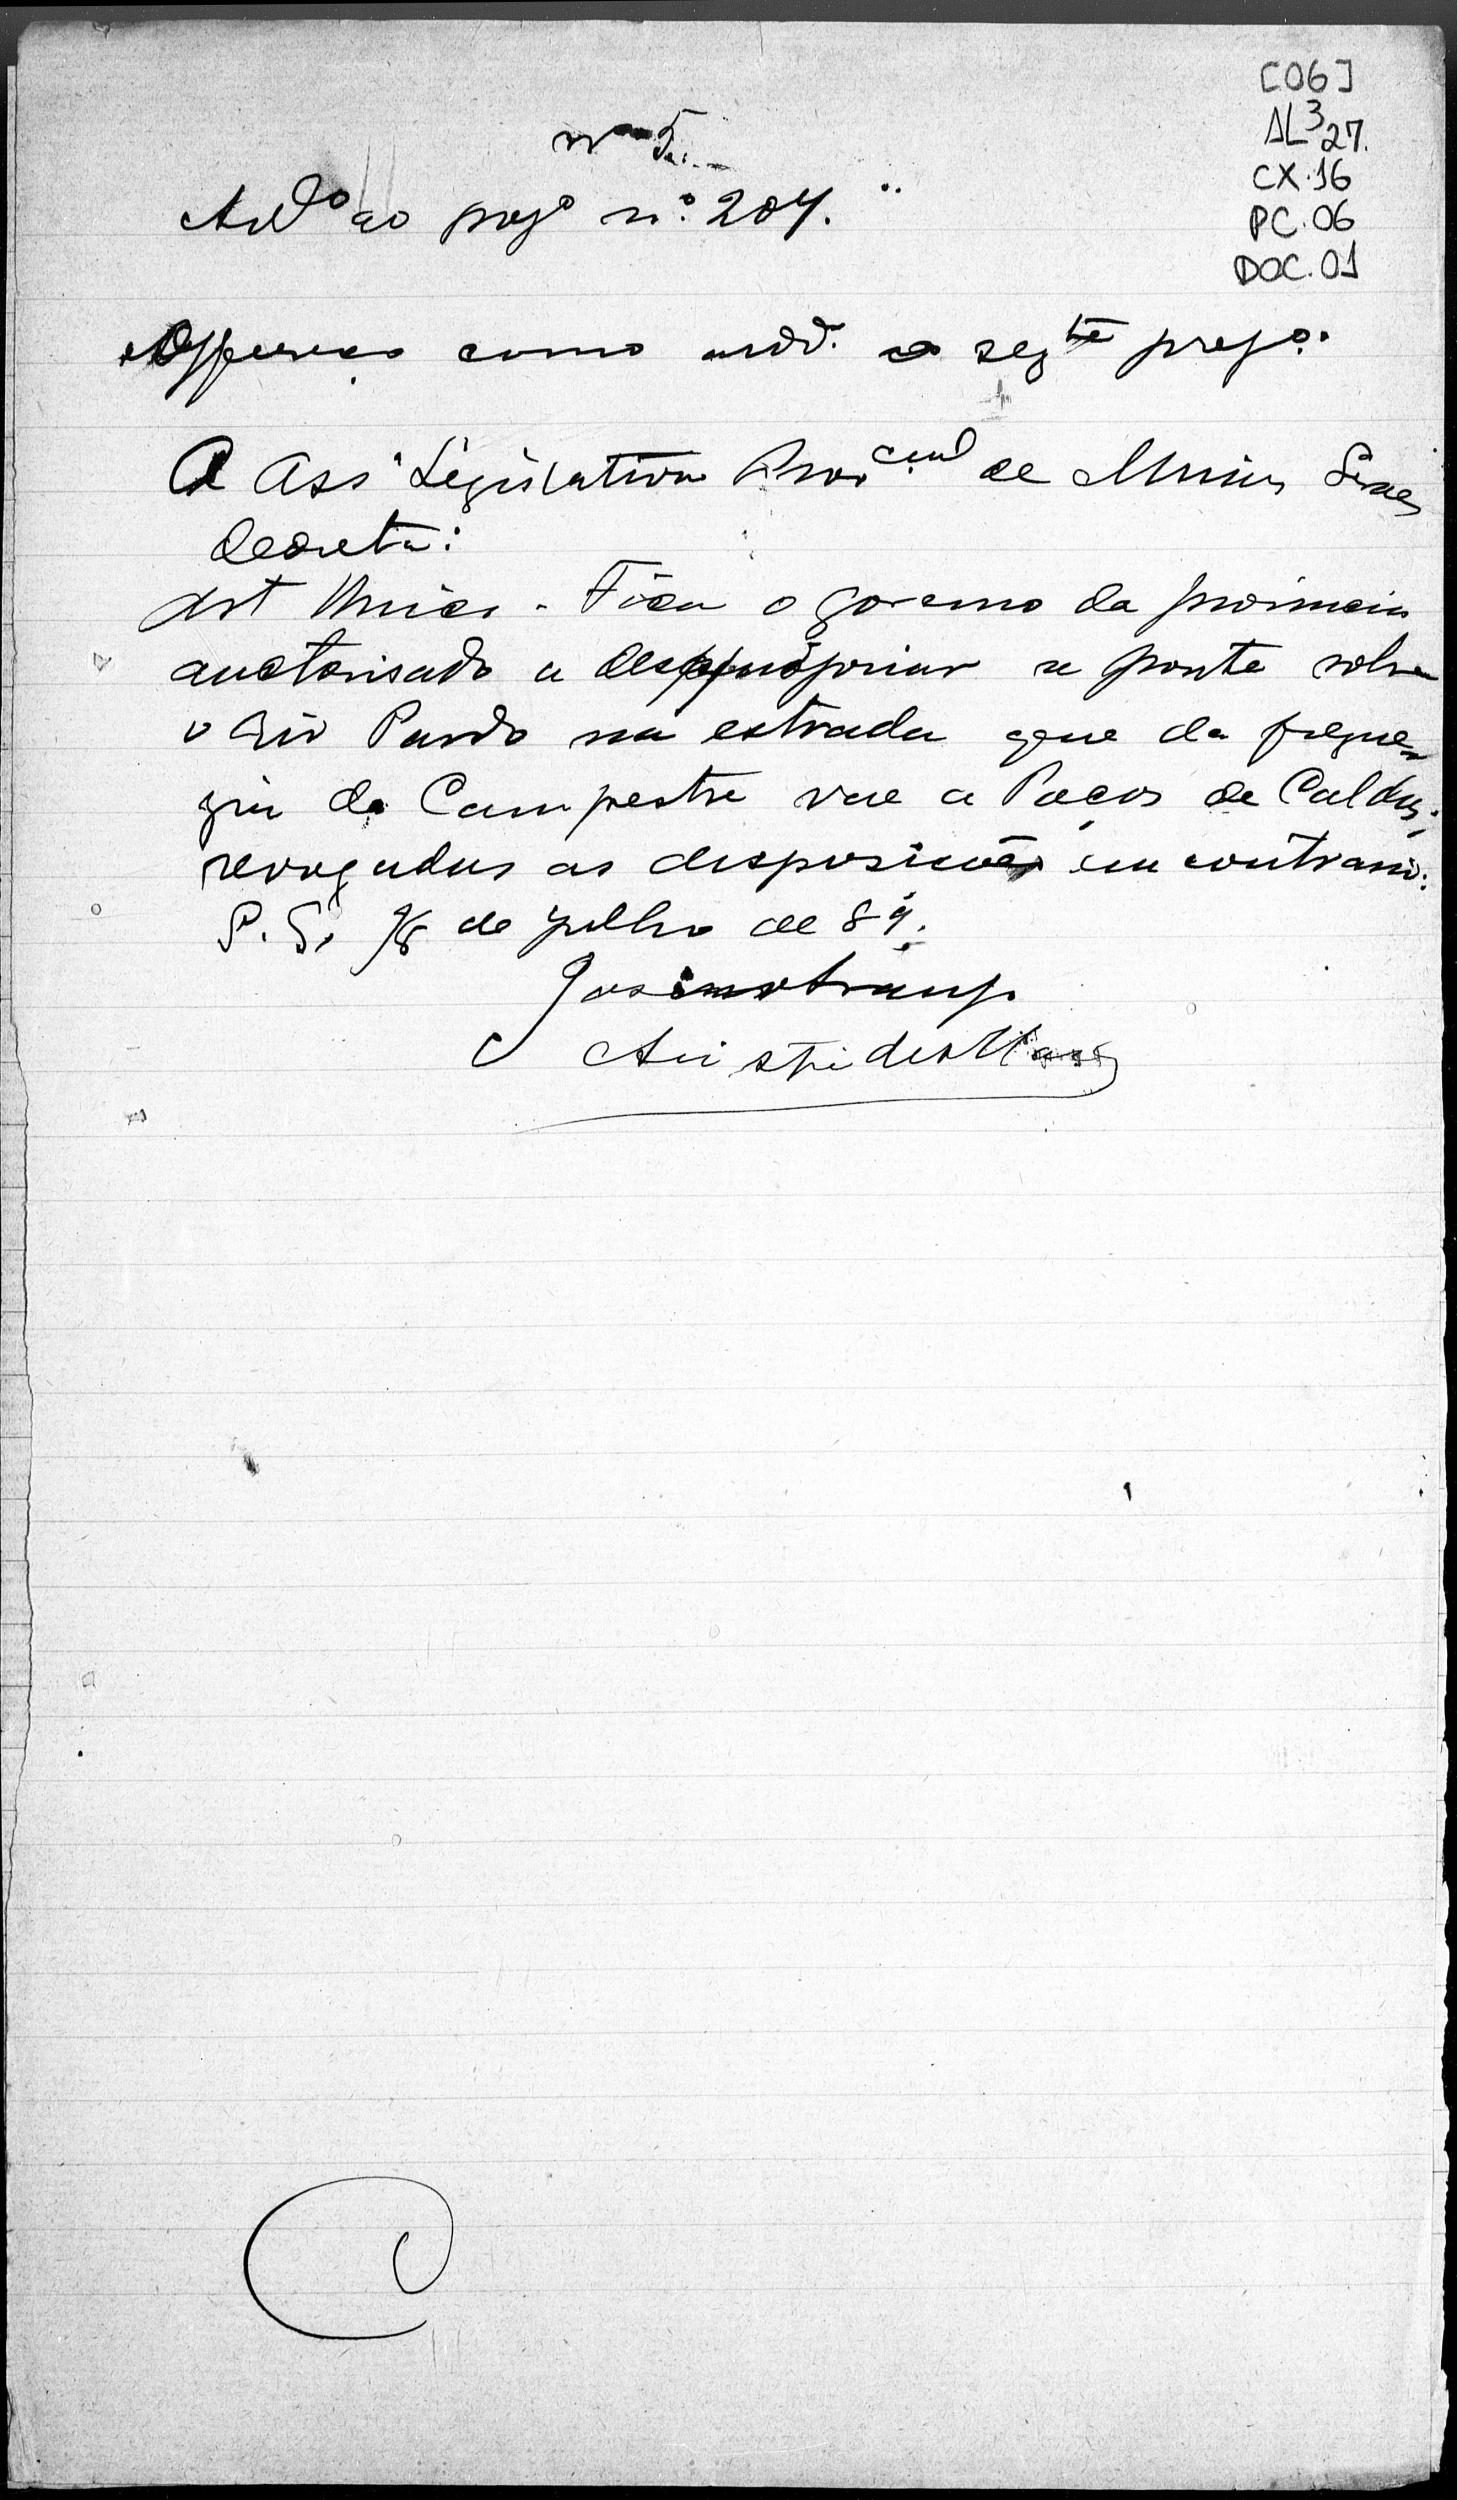 [06]
AL³27.
CX.16
PC.06
DOC.01
nº 5.
Add.º ao proj.º nº 207.
Offereço como add. o seg.te proj.º.
A Ass. Legislativa Prov.cial de Minas Geraes
decreta:
Art Unico - Fica o governo da provincia
auctorisado a desappropriar a ponte sobre
o Rio Pardo na estrada que da fregue-
zia do Campestre vae a Poços de Caldas;
revogadas as disposições em contrario.
S. S. 18 de julho de 89.
Josino
Aristides Maia